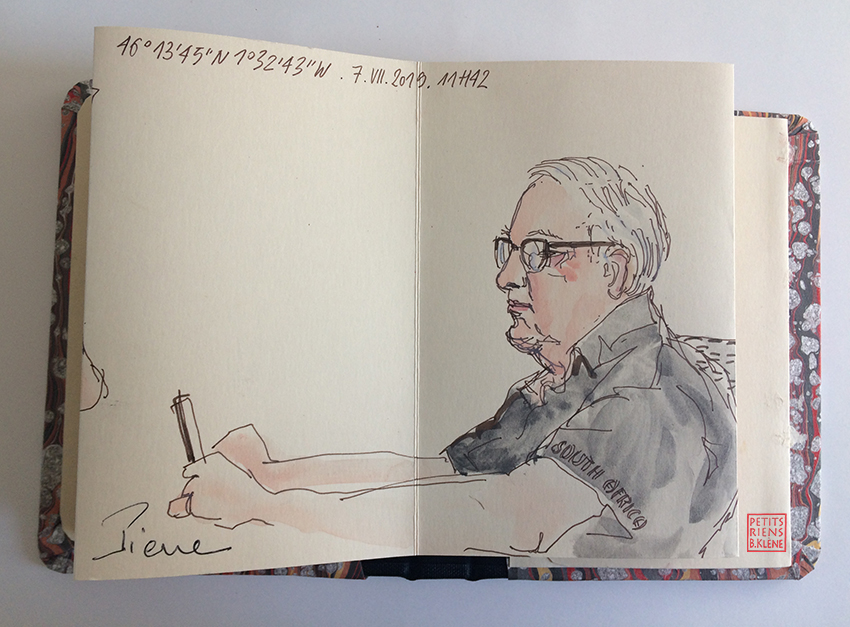 46° 13'45"N 1°32'43"W . 7.VII.2019. 11H42
SOUTH AFRICA
Pierre
PETITS
RIENS
B.KLENE